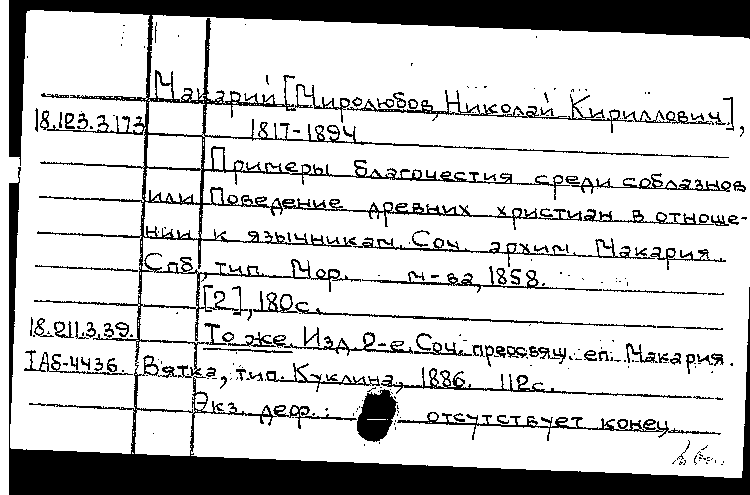 Макарий [Миролюбов, Николай Кириллович],
18.123.3.173 1817-1894.
Примеры благочестия среди соблазнов
или Поведение древних христиан в отноше-
нии к язычникам. Соч. архим. Макария.
Спб., тип. Мор. м-ва, 1858.
[2], 180с.
18.211.3.39. То же. Изд. 2-е. Соч. преосвящ. еп. Макария.
IA5-4436. Вятка, тип. Куклина, 1886. 112с.
Экз. деф.: отсутствует конец